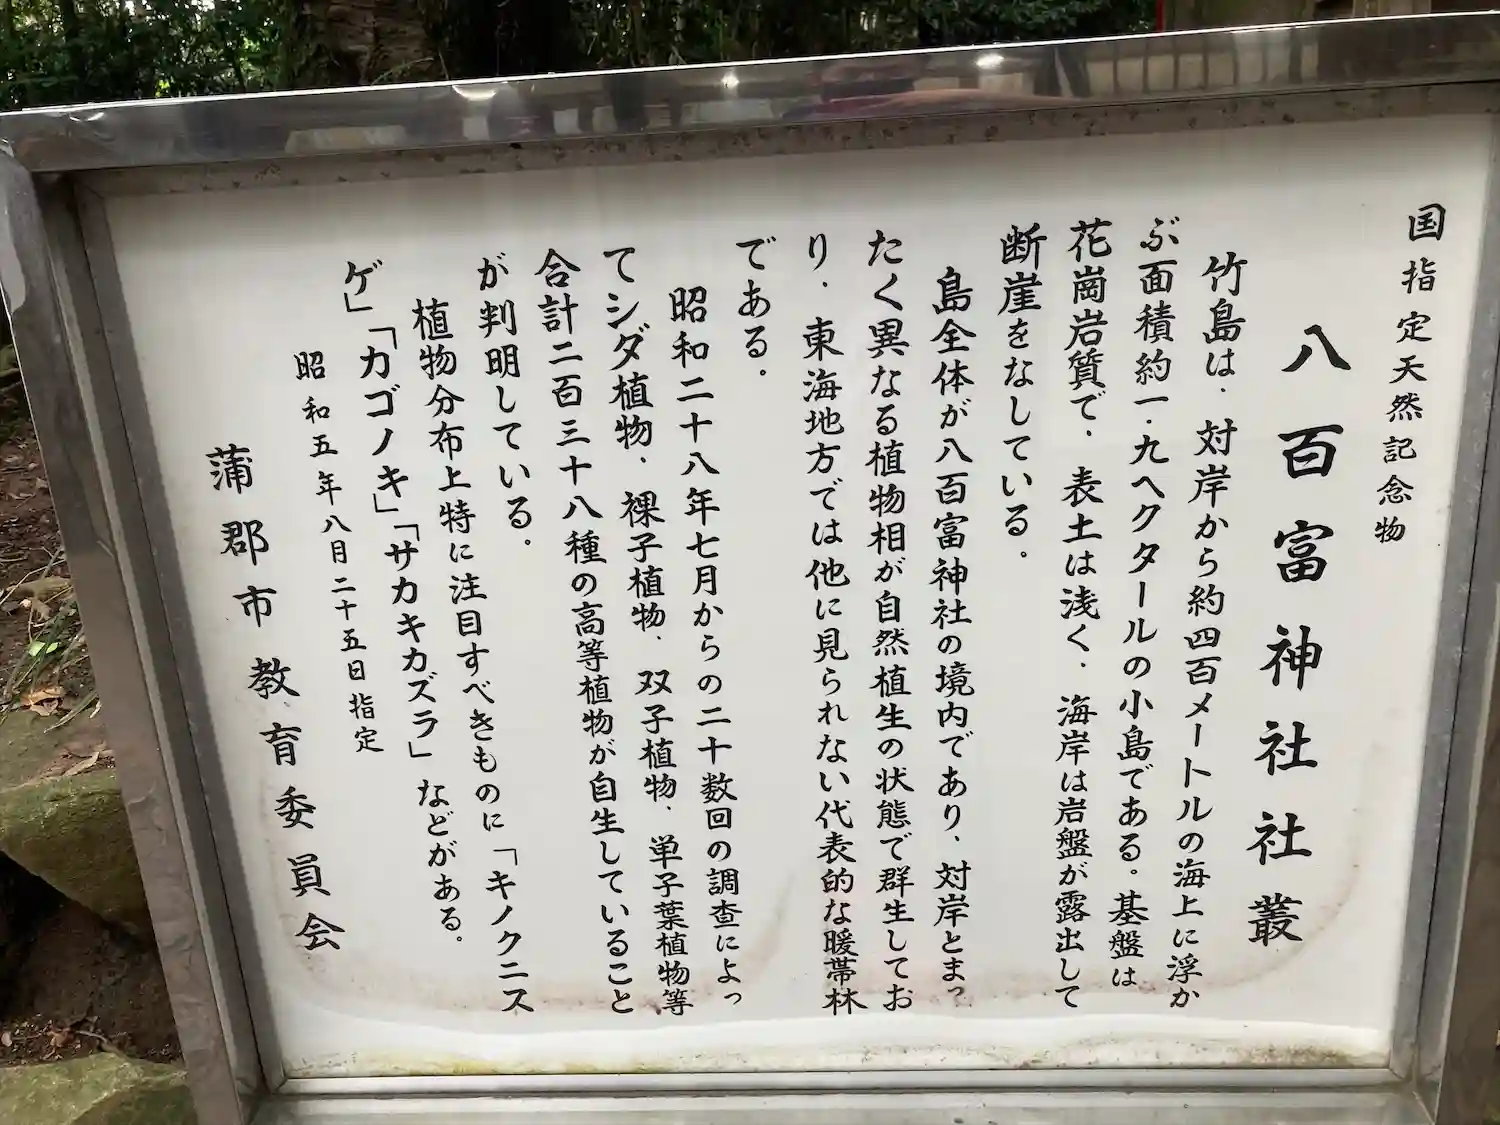 国指定天然記念物
八百富神社社叢
竹島は、対岸から約四百メートルの海上に浮か
ぶ面積約一.九ヘクタールの小島である。基盤は
花崗岩質で、表土は浅く、海岸は岩盤が露出して
断崖をなしている。
島全体が八百富神社の境内であり、対岸とまっ
たく異なる植物相が自然植生の状態で群生してお
り、東海地方では他に見られない代表的な暖帯林
である。
昭和二十八年七月からの二十数回の調査によっ
てシダ植物、裸子植物、双子植物、単子葉植物等
合計二百三十八種の高等植物が自生していること
が判明している。
植物分布上特に注目すべきものに「キノクニス
ゲ」「カゴノキ」「サカキカズラ」などがある。
昭和五年八月二十五日指定
蒲郡市教育委員会